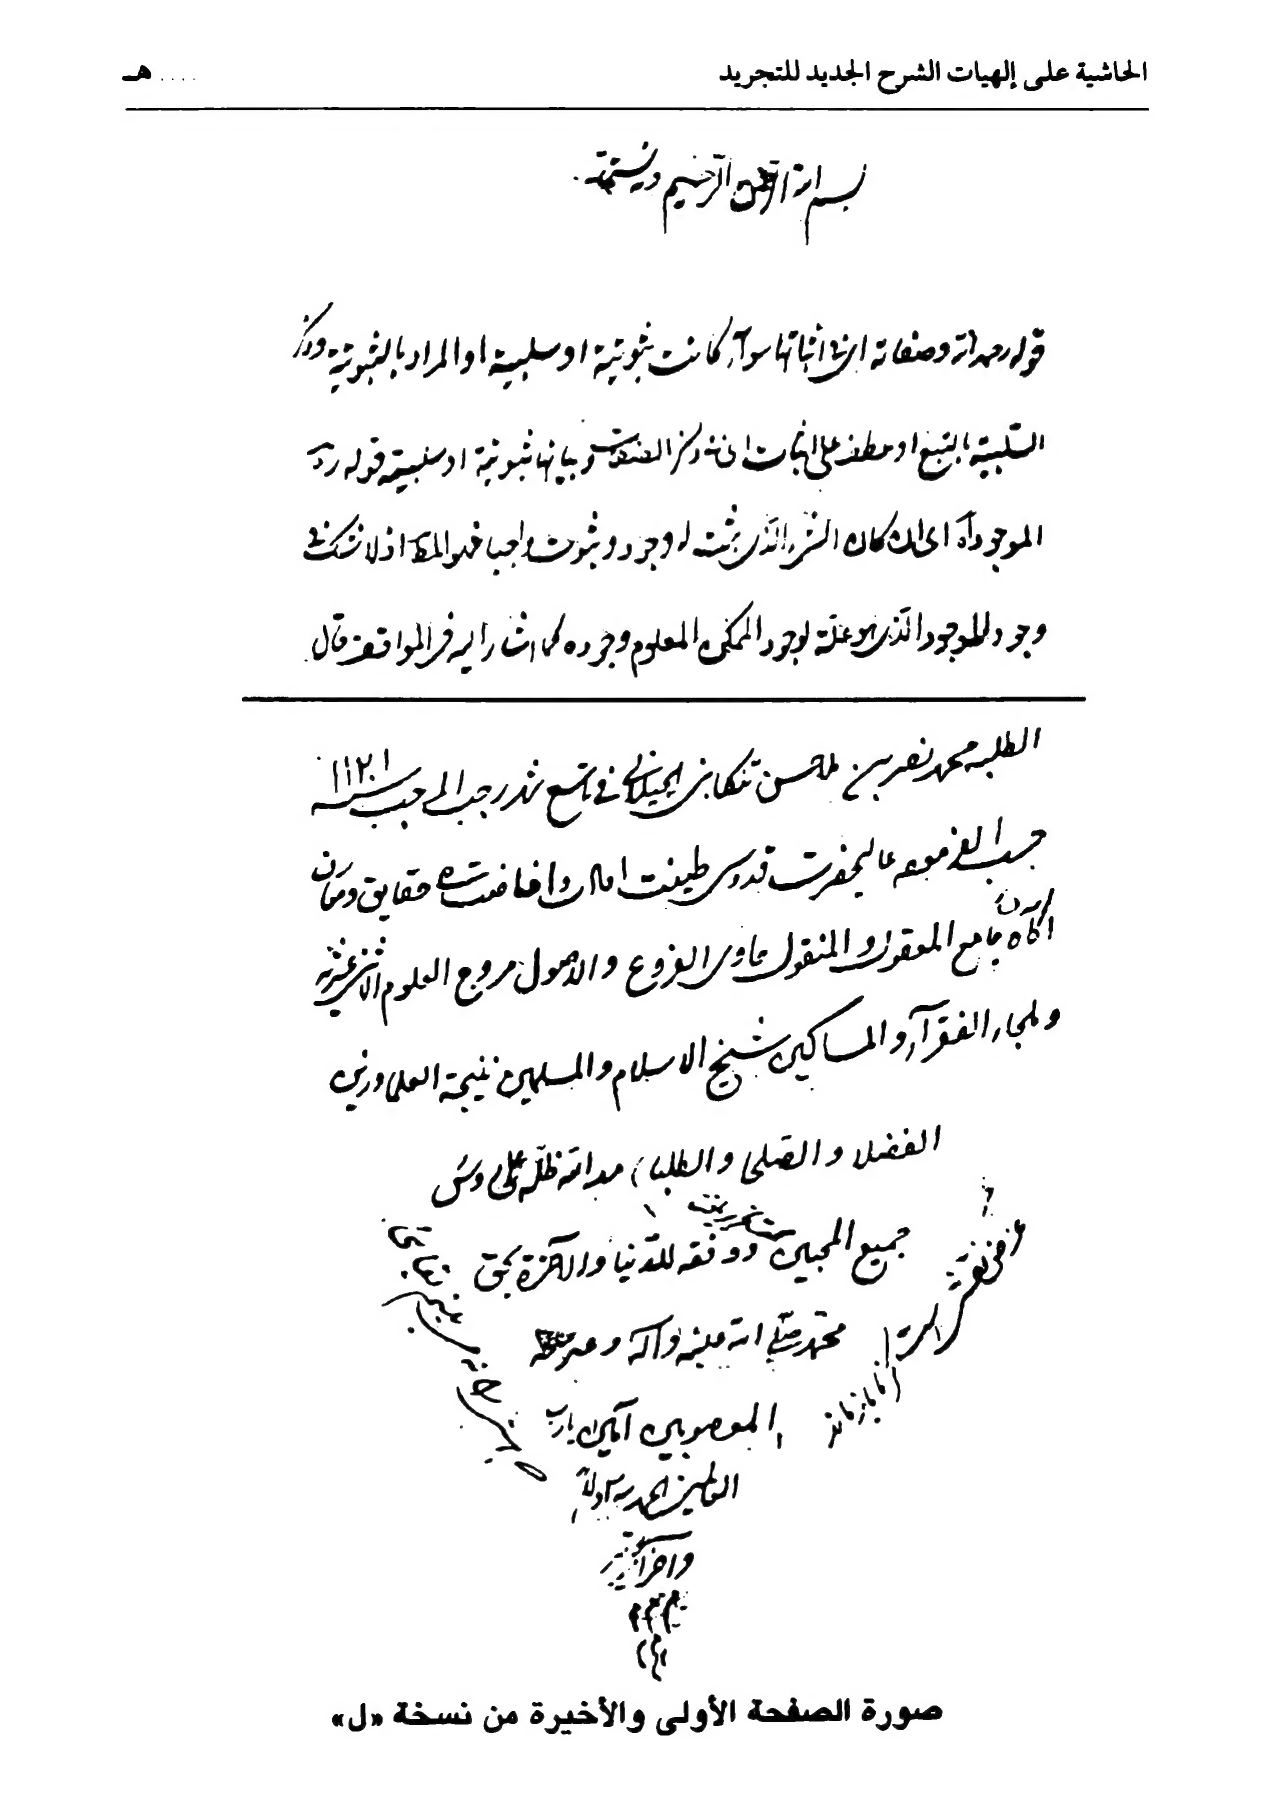 الحاشية على إلهيات الشرح الجديد للتجريد .... هـ
بسم الله الرحمن الرحيم وبه نستعين
قوله رحمه الله وصفاته اى فى اثباتها سوآء كانت ثبوتية او سلبية او المراد بالثبوتية وذكر
السلبية بالتبع او عطف على اثبات اى فى ذكر الصفات وبيانها ثبوتية او سلبية قوله رحمه
الموجود آه اى ان كان الشىء الذى ثبت له وجود وثبوت واجبا فهو المط اذ لا شك فى
وجود الموجود الذى هو علة لوجود الممكن المعلوم وجوده كما اشار اليه فى المواقف قال
الطلبه محمد نصير بن محسن تنكابنى الجيلانى فى تاسع شهر رجب المرجب سنه ١١٢٠
حسب الفرموده عاليحضرت قدوسى طينت افادت وافاضت حقايق ومعارف
آگاه جامع المعقول والمنقول حاوى الفروع والاصول مروج العلوم الاثنى عشريه
وملجاء الفقرآء والمساكين شيخ الاسلام والمسلمين نتيجة العلماء وزين
الفضلا والصلحا والطلبا مد الله ظله على رؤس
جميع المحبين ووفقه للدنيا والآخرة بحق
محمد صلى الله عليه وآله وعترته
المعصومين آمين يا رب
العالمين الحمد لله اولا
وآخرا
صورة الصفحة الأولى والأخيرة من نسخة «ل»